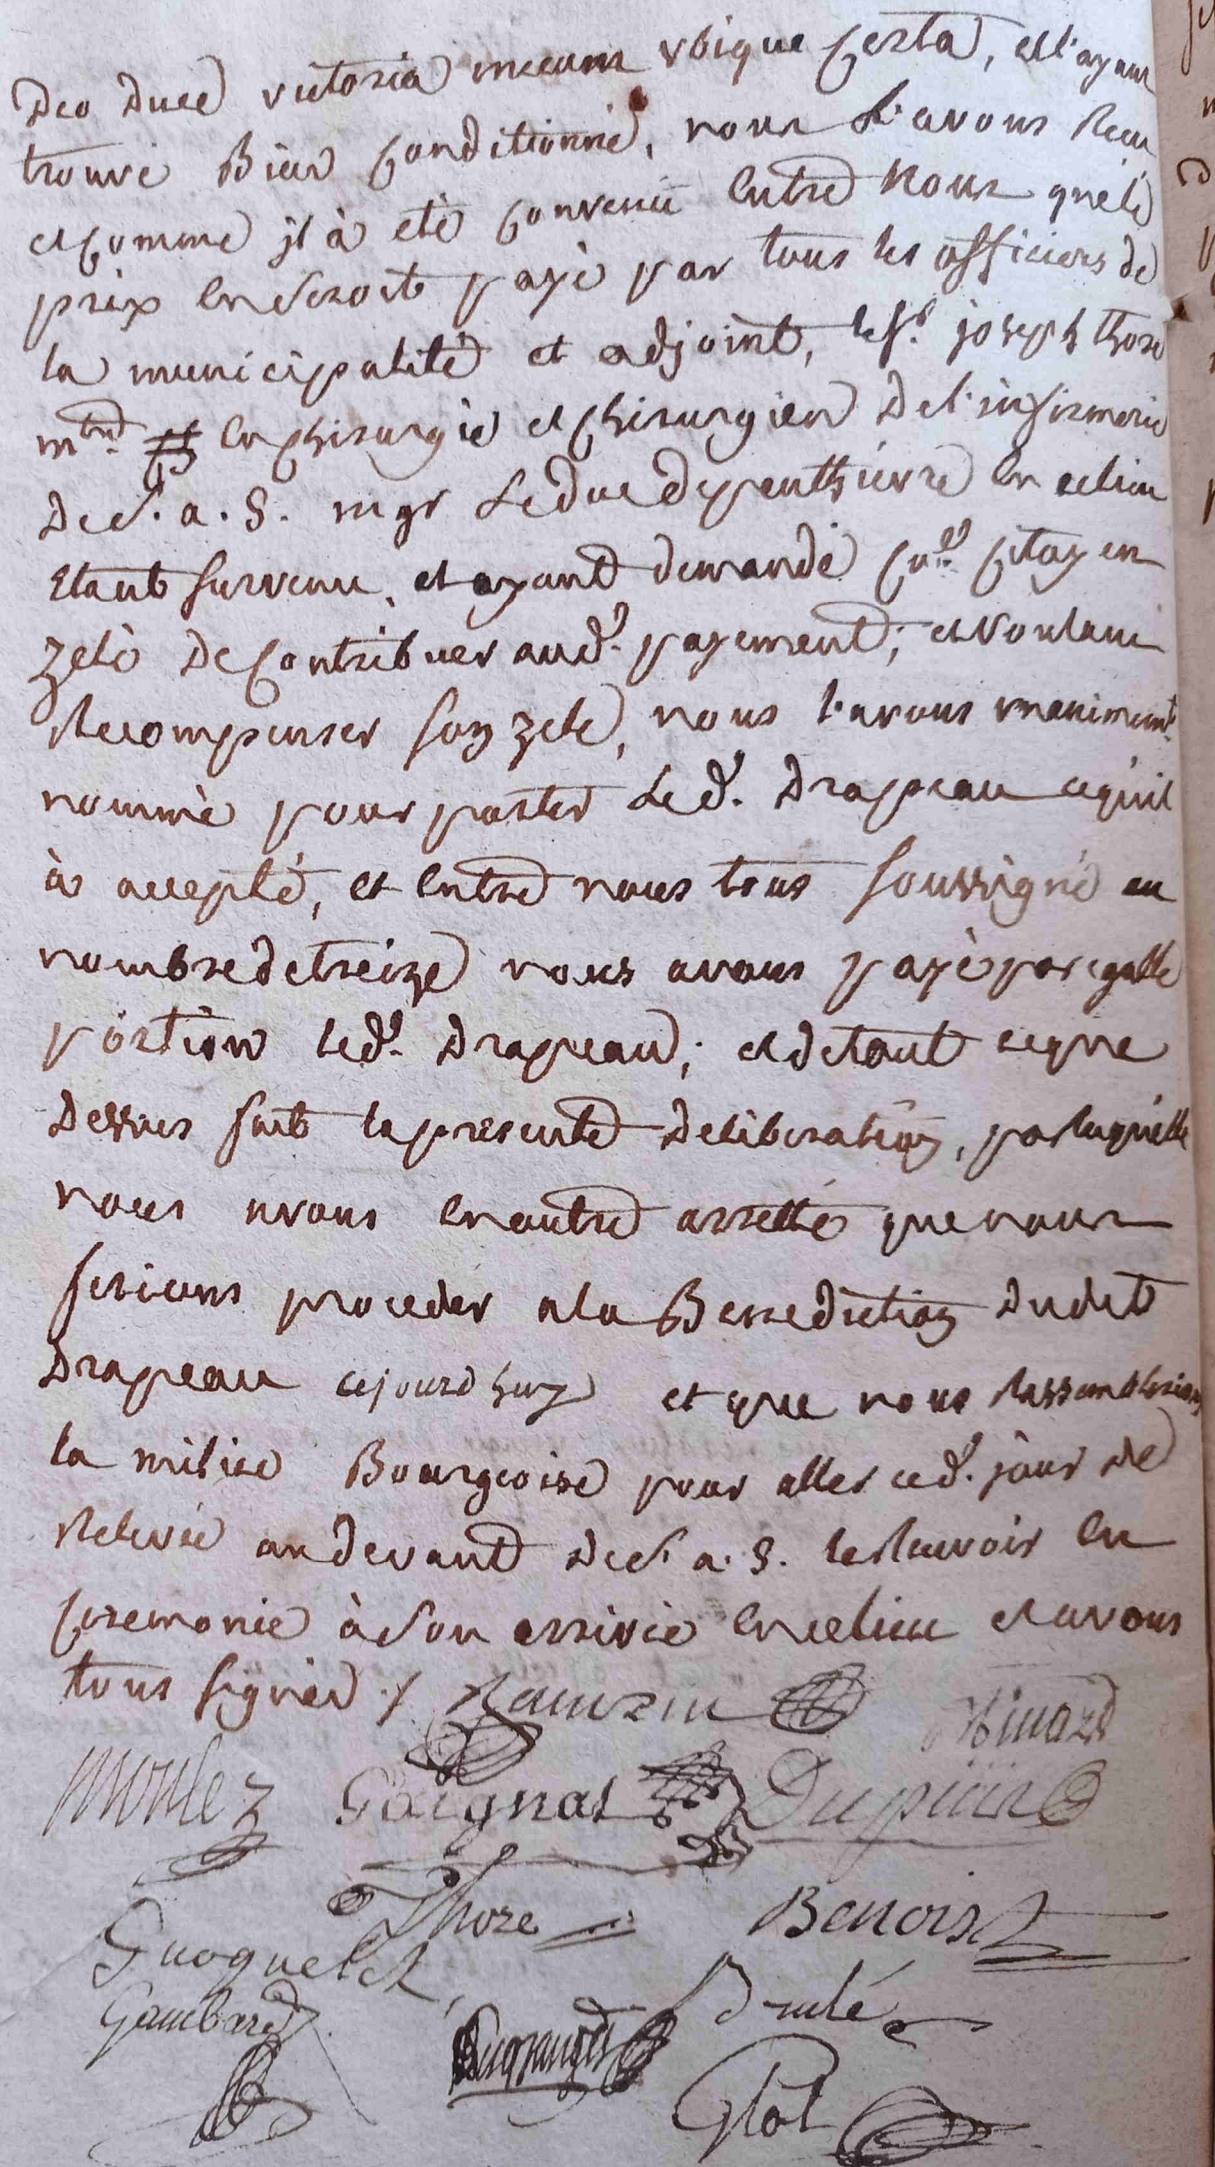 Deo Duce victoria mecum ubique certa, et l'ayant
trouvé Bien conditionné, nous l'avons Reçu
et comme jl à eté convenü Entre Nous que le
prix En seroit payé par tous les officiers de
la municipalité et adjoint, le sr. joseph thoré
mtre. En chirurgie et chirurgien De l'infirmerie
De s. a. S. mgr Le duc de penthievre En ce lieu
Etant survenu, et ayant demandé Citoyen
zelé De Contribuer aud. payement; et voulant
Recompenser son zele, nous l'avons unaniment.
nommé pour porter Led. Drapeau ce qu'il
à accepté, et Entre nous tous soussigné au
nombre de treize nous avons payé par egalle
portion led. Drapeau; et de tout ce que
Dessus fait la presente Deliberation, par laquelle
nous avons En outre arretté que nous
ferions proceder a la Benediction Dudit
Drapeau cejourd'huy et que nous Rassemblerions
la milice Bourgeoise pour aller ced. jour de
Relevée au devant De s. a. S. le Recevoir En
ceremonie à son arrivée En ce lieu et avons
tous signés ./.
Dupuis
Thoré Benoist
Gambard Brulé